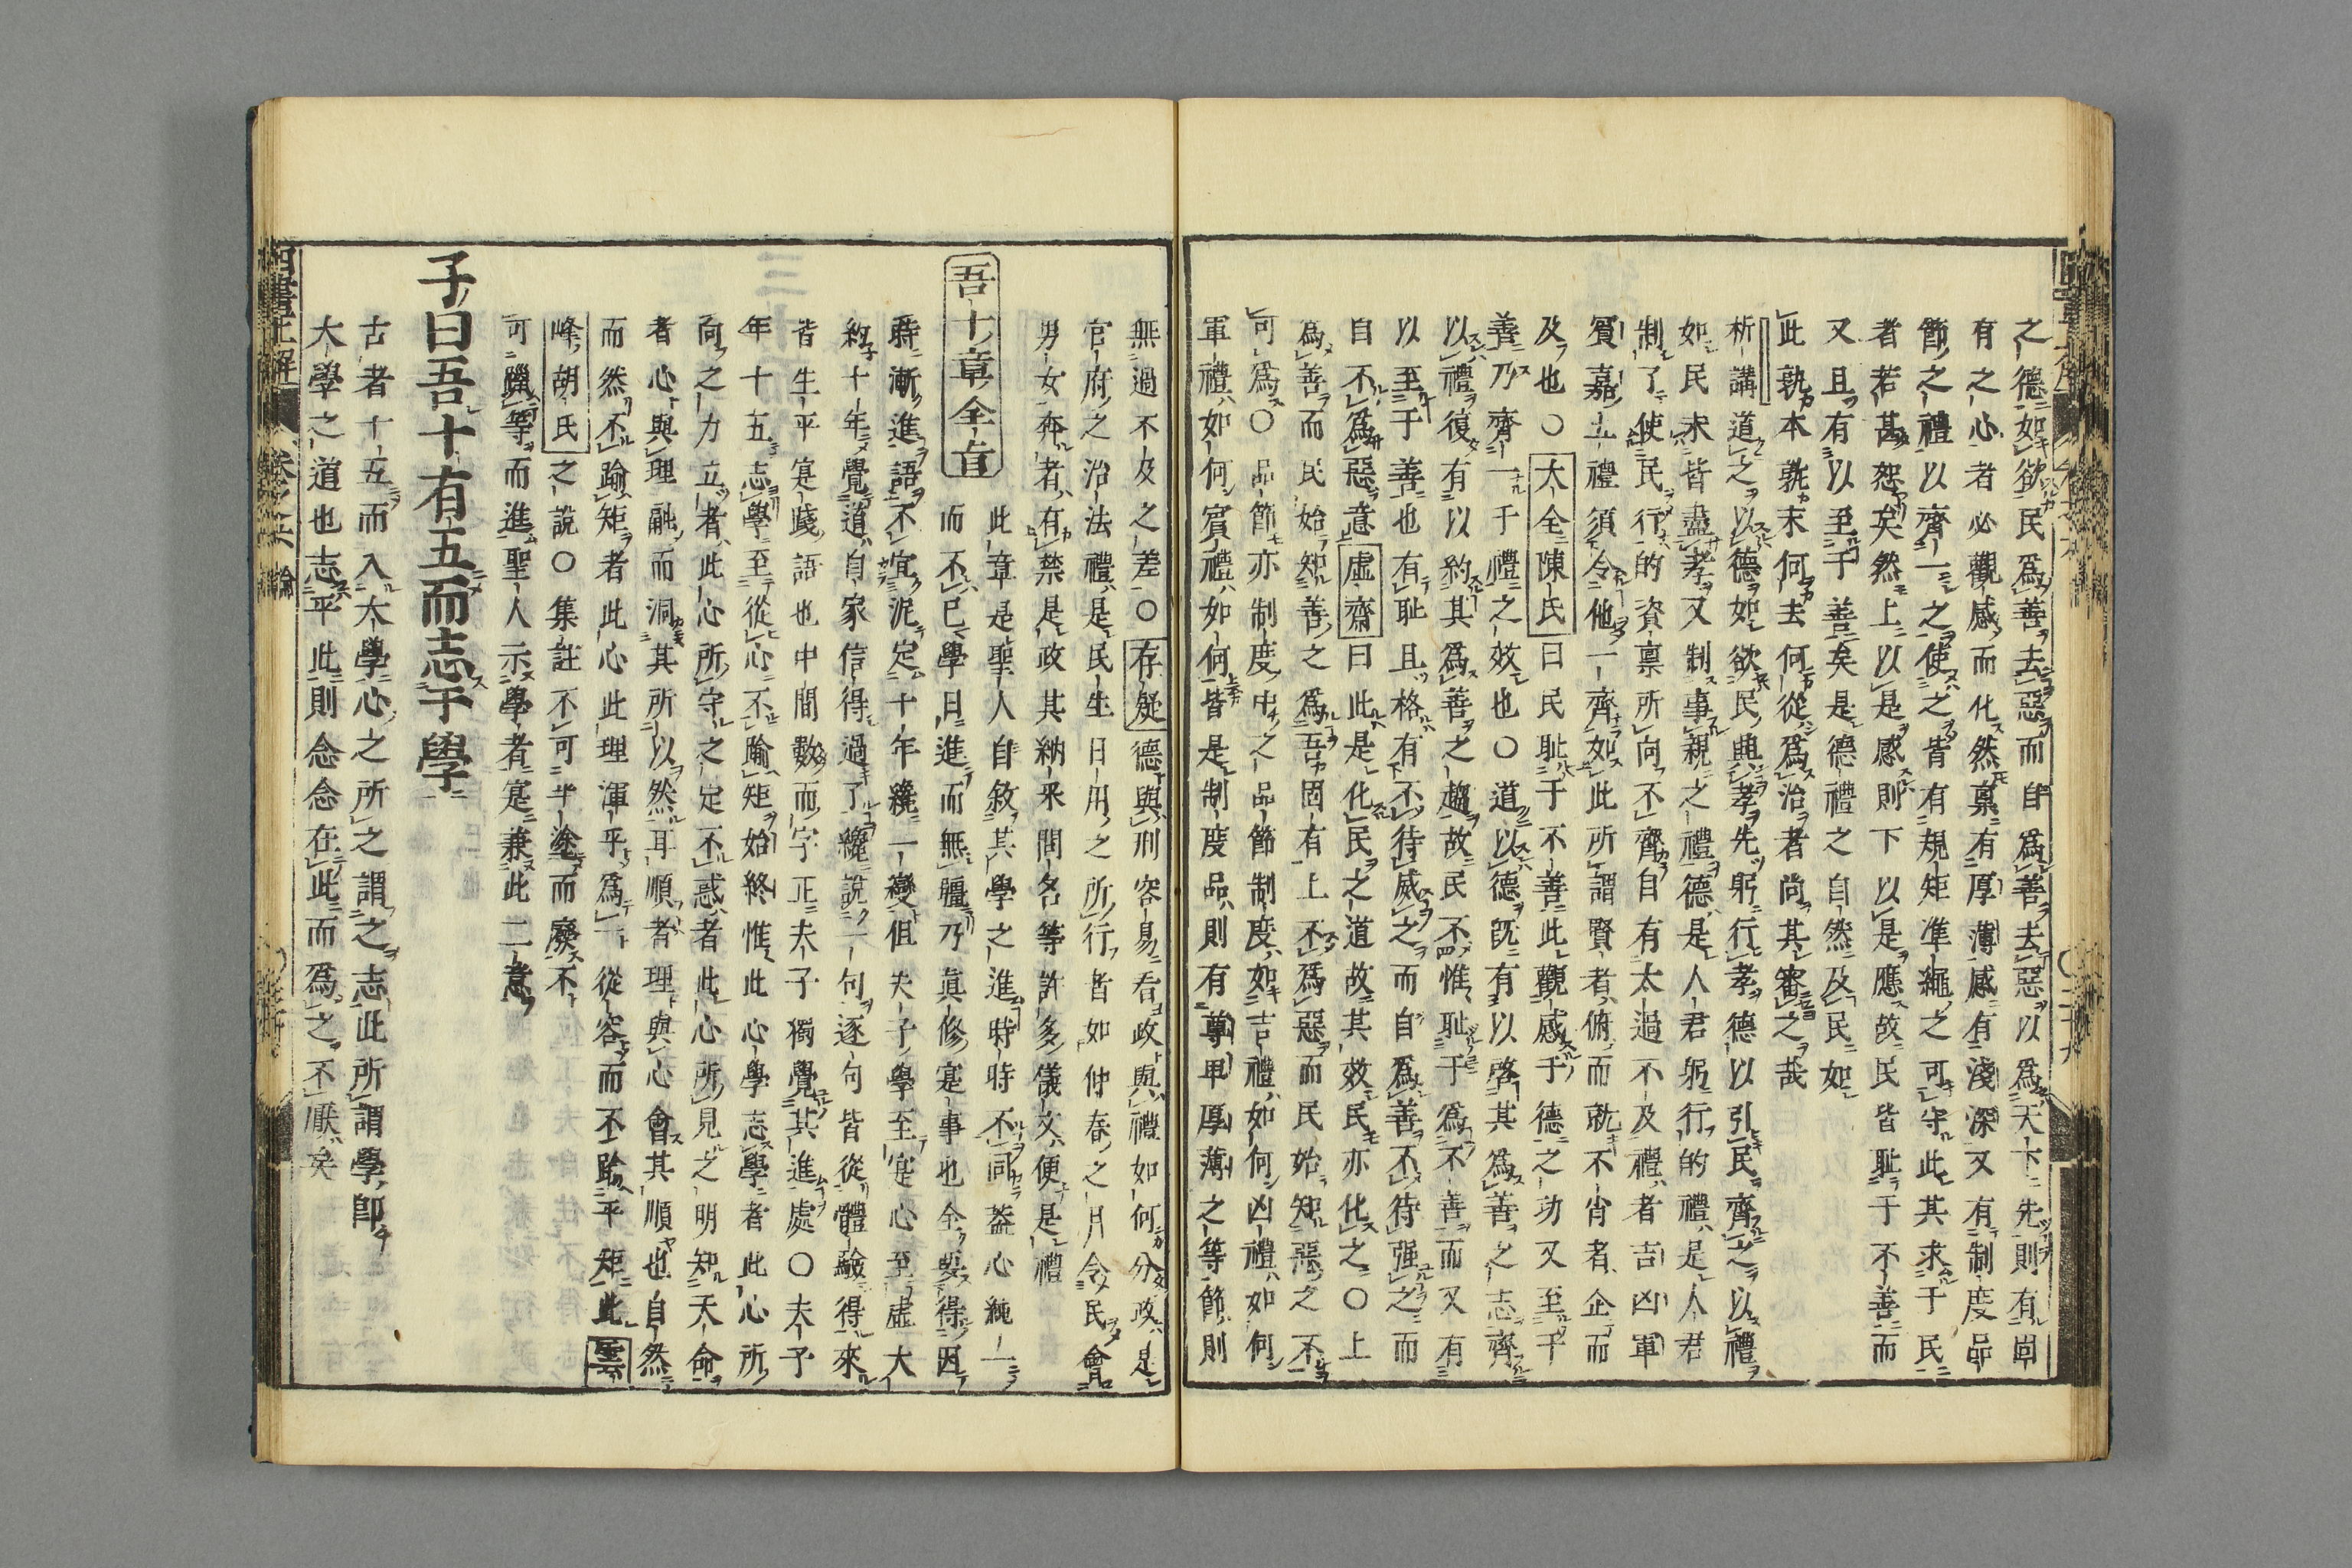 之德如欲民爲善去惡而自爲善去惡以爲天下先則有固
有之心者必觀感而化然稟有厚薄感有淺深又有制度品
節之禮以齊一之使之皆有規矩準繩之可守此其求于民
者若甚恕矣然上以是感則下以是應故民皆耻于不善而
又且有以至于善矣是德禮之自然及民如
此孰本孰末何去何從爲治者尚其審之哉
析講道之以德如欲民興孝先躬行孝德以引民齊之以禮
如民未皆盡孝又制事親之禮德是人君躬行的禮是人君
制了使民行的資稟所向不齊自有太過不及禮者吉凶軍
賓嘉五禮須令他一齊如此所謂賢者俯而就不肖者企而
及也○大全陳氏曰民耻于不善此觀感于德之功又至于
善乃齊一于禮之效也○道以德旣有以啓其爲善之志齊
以禮復有以約其爲善之趨故民不惟耻于爲不善而又有
以至于善也有耻且格有不待威之而自爲善不待强之而
自不爲惡意虛齋曰此是化民之道故其效民亦化之○上
爲善而民始知善之爲吾固有上不爲惡而民始知惡之不
可爲○品節亦制度中之品節制度如吉禮如何凶禮如何
軍禮如何賓禮如何皆是制度品則有尊卑厚薄之等節則
無過不及之差○存疑德與刑容易看政與禮如何分政是
官府之治法禮是民生日用之所行者如仲春之月令民會
男女奔者有禁是政其納采問名等許多儀文便是禮
吾十章全旨 此章是聖人自敘其學之進時時不同蓋心純一
而不已學日進而無疆乃眞修寔事也全要得因
時漸進語不宜泥定十年纔一變但夫子學至寔心至虛大
約十年覺道自家信得過了纔說一句逐句皆從體驗得來
皆生平寔踐語也中間數而字正夫子獨覺其進處○夫子
年十五志學至從心不踰矩始終惟此心學志學者此心所
向之力立者此心所守之定不惑者此心所見之明知天命
者心與理融而洞其所以然耳順者理與心會其順也自然
而然不踰矩者此心此理渾乎爲一從容而不踰乎矩此雲
峰胡氏之說○集註不可半塗而廢不
可躐等而進聖人示學者寔兼此二意
子曰吾十有五而志于學
古者十五而入大學心之所之謂之志此所謂學卽
大學之道也志乎此則念念在此而爲之不厭矣
四書正解 卷之 論